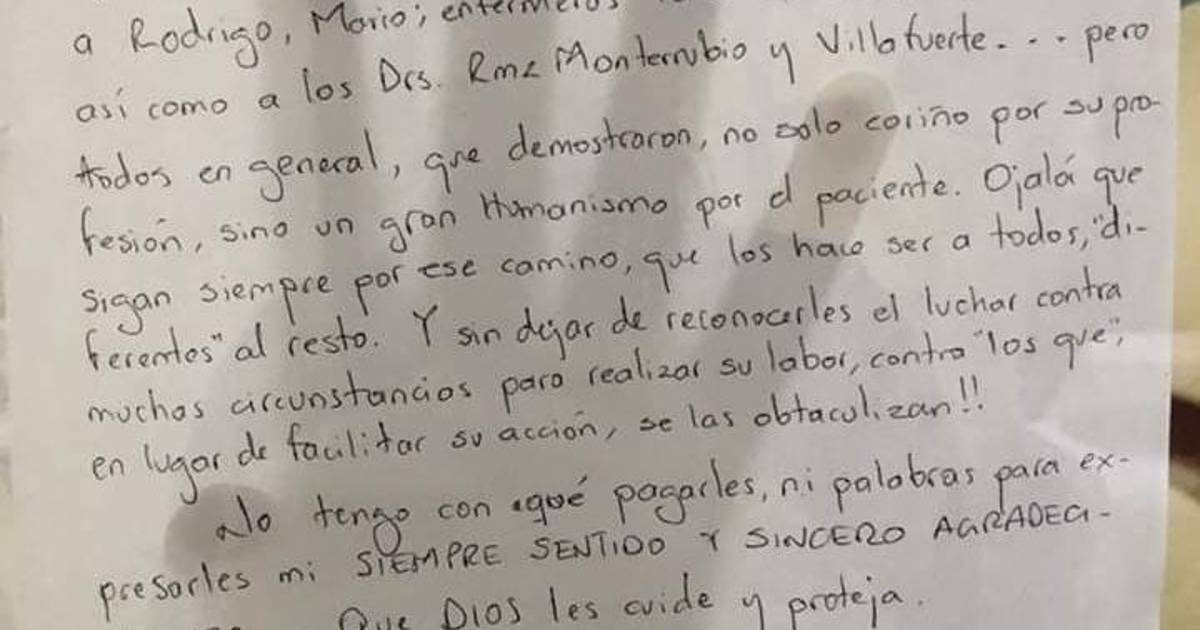 a Rodrigo, Mario; enfermeros
así como a los Drs. Rmz Monterrubio y Villafuerte... pero
todos en general, que demostraron, no solo cariño por su pro-
fesión, sino un gran Humanismo por el paciente. Ojalá que
sigan siempre por ese camino, que los hace ser a todos, "di-
ferentes" al resto. Y sin dejar de reconocerles el luchar contra
muchas circunstancias para realizar su labor, contra "los que",
en lugar de facilitar su acción, se las obtaculizan!!
No tengo con qué pagarles, ni palabras para ex-
presarles mi SIEMPRE SENTIDO Y SINCERO AGRADECI-
Que DIOS les cuide y proteja.